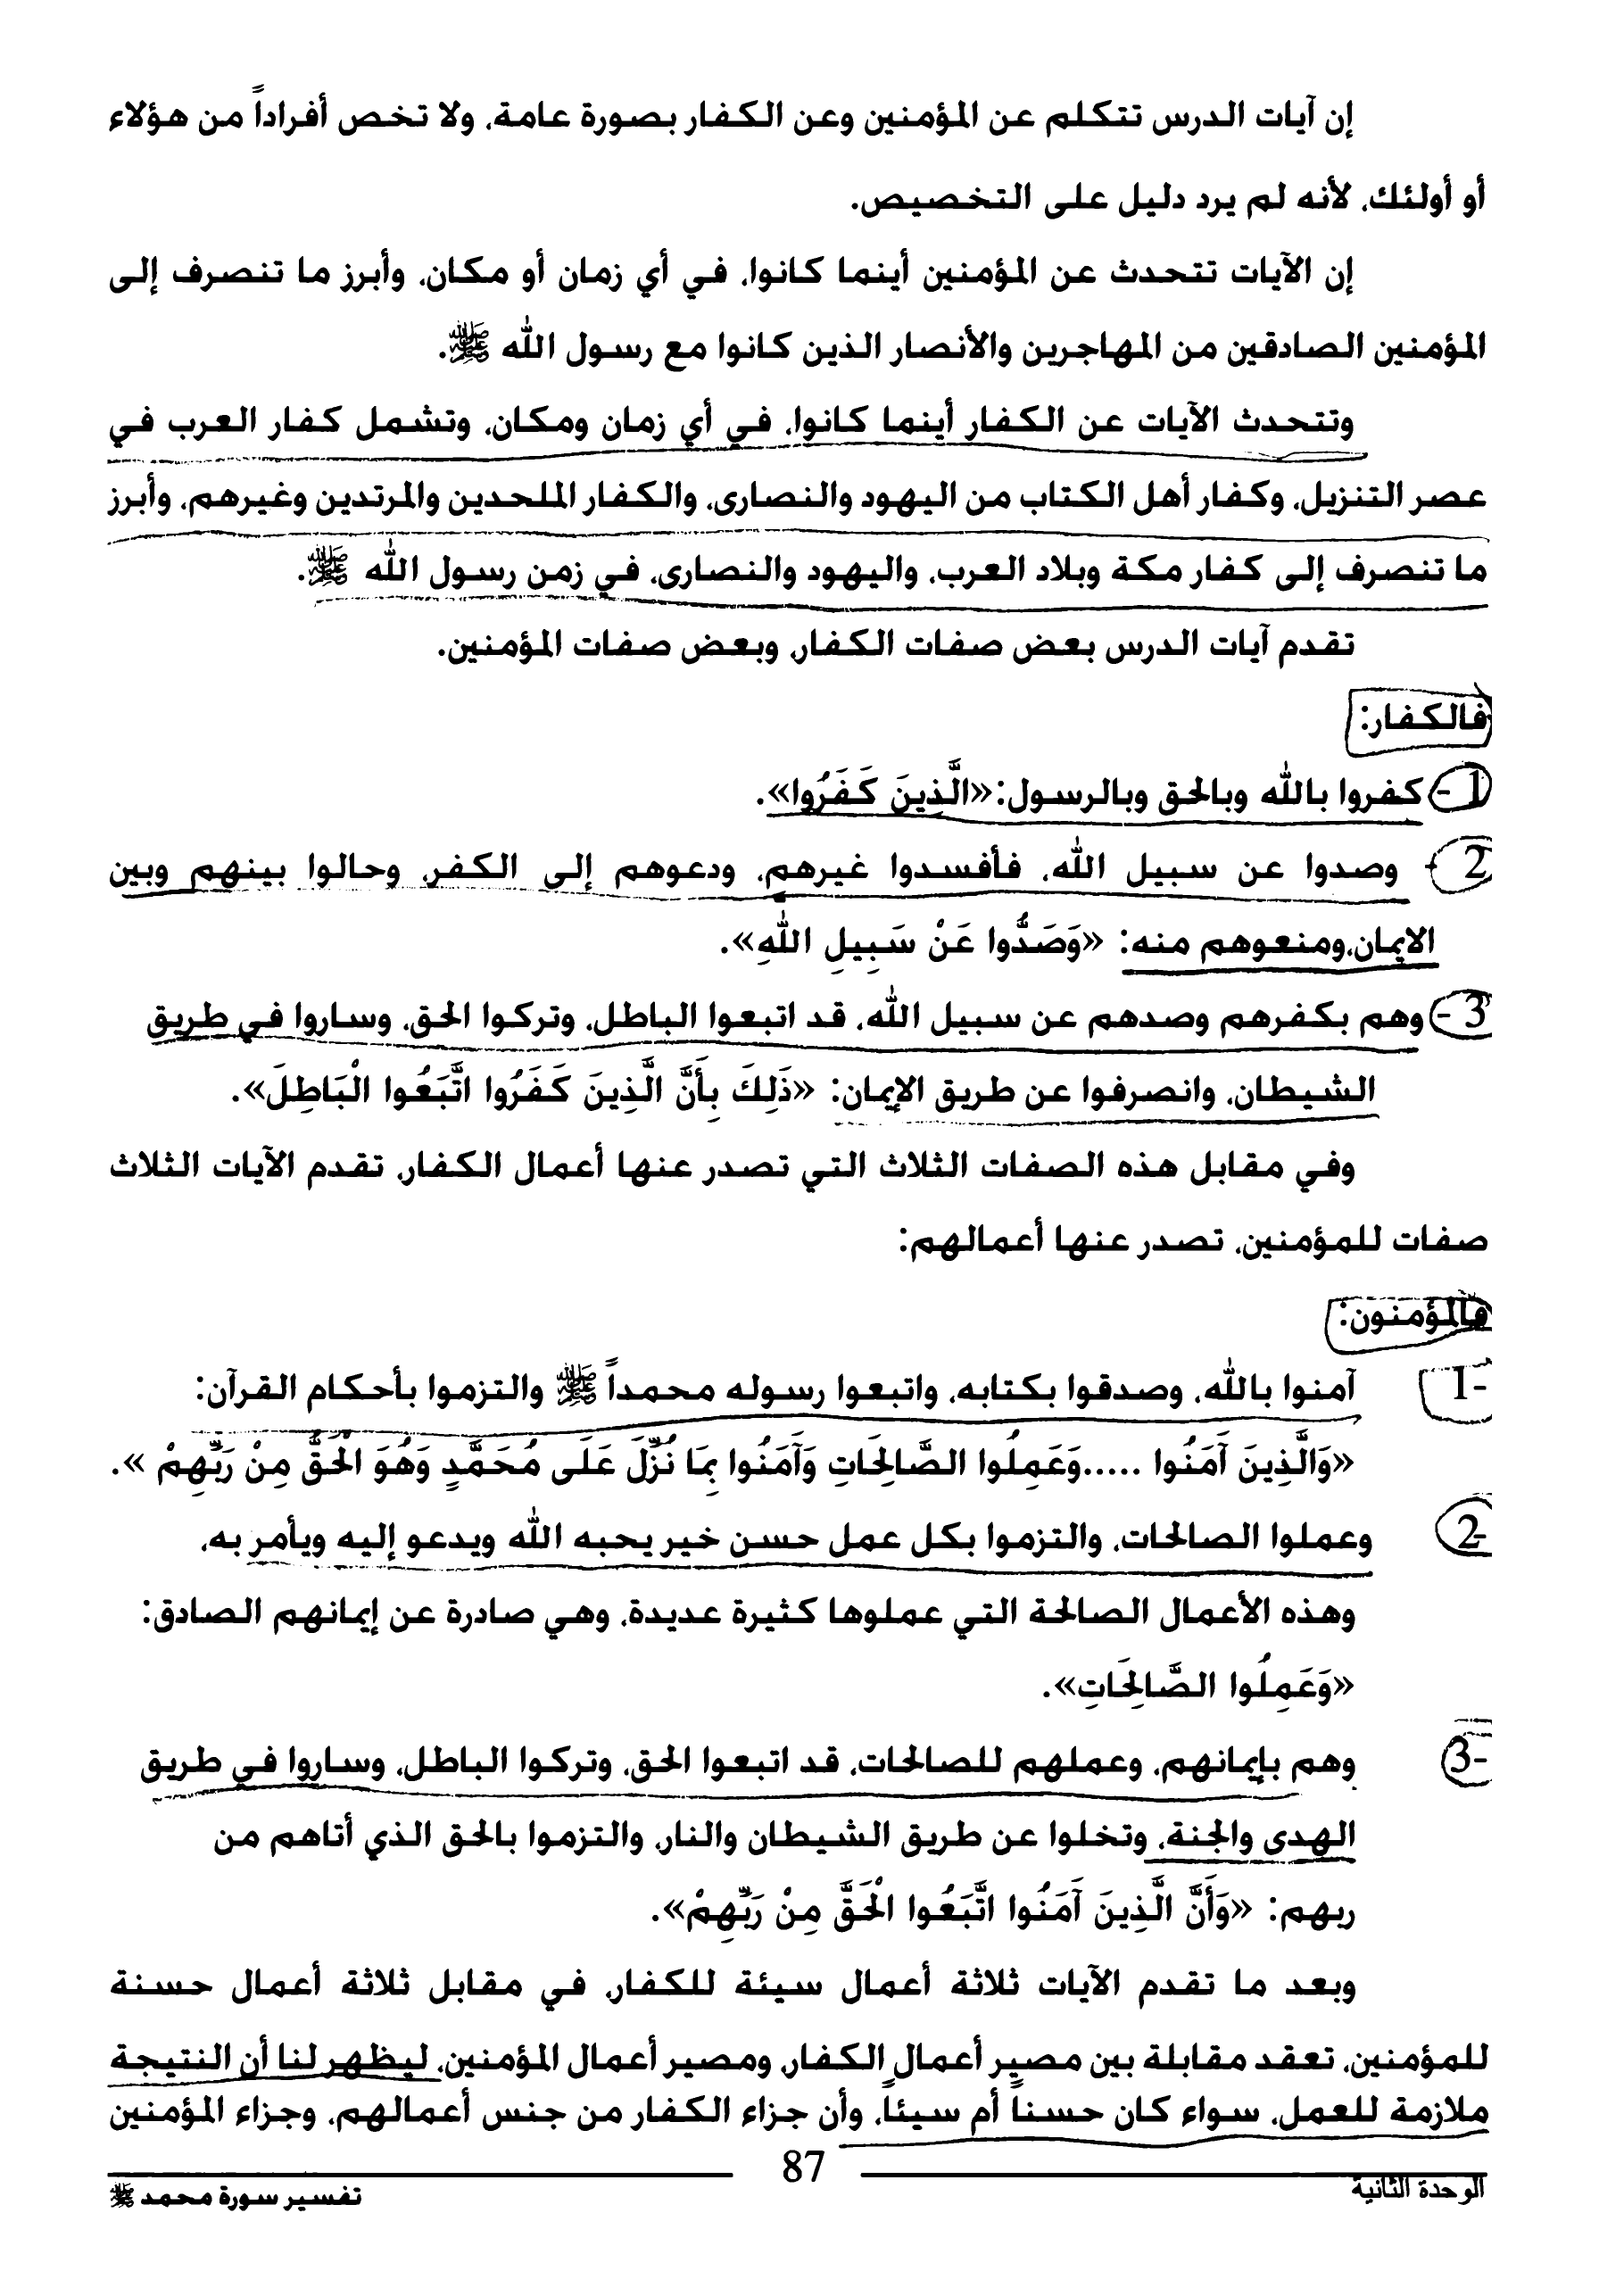 إن آيات الدرس تتكلم عن المؤمنين وعن الكفار بصورة عامة، ولا تخص أفراداً من هؤلاء
أو أولئك، لأنه لم يرد دليل على التخصيص.
إن الآيات تتحدث عن المؤمنين أينما كانوا، في أي زمان أو مكان، وأبرز ما تنصرف إلى
المؤمنين الصادقين من المهاجرين والأنصار الذين كانوا مع رسول الله ﷺ.
وتتحدث الآيات عن الكفار أينما كانوا، في أي زمان ومكان، وتشمل كفار العرب في
عصر التنزيل، وكفار أهل الكتاب من اليهود والنصارى، والكفار الملحدين والمرتدين وغيرهم، وأبرز
ما تنصرف إلى كفار مكة وبلاد العرب، واليهود والنصارى، في زمن رسول الله ﷺ.
تقدم آيات الدرس بعض صفات الكفار، وبعض صفات المؤمنين.
فالكفار:
1- كفروا بالله وبالحق وبالرسول:«الَّذِينَ كَفَرُوا».
2- وصدوا عن سبيل الله، فأفسدوا غيرهم، ودعوهم إلى الكفر، وحالوا بينهم وبين
الايمان،ومنعوهم منه: «وَصَدُّوا عَنْ سَبِيلِ اللهِ».
3- وهم بكفرهم وصدهم عن سبيل الله، قد اتبعوا الباطل، وتركوا الحق، وساروا في طريق
الشيطان، وانصرفوا عن طريق الإيمان: «ذَلِكَ بِأَنَّ الَّذِينَ كَفَرُوا اتَّبَعُوا الْبَاطِلَ».
وفي مقابل هذه الصفات الثلاث التي تصدر عنها أعمال الكفار، تقدم الآيات الثلاث
صفات للمؤمنين، تصدر عنها أعمالهم:
فالمؤمنون:
1- آمنوا بالله، وصدقوا بكتابه، واتبعوا رسوله محمداً ﷺ والتزموا بأحكام القرآن:
«وَالَّذِينَ آمَنُوا .....وَعَمِلُوا الصَّالِحَاتِ وَآمَنُوا بِمَا نُزِّلَ عَلَى مُحَمَّدٍ وَهُوَ الْحَقُّ مِنْ رَبِّهِمْ ».
2- وعملوا الصالحات، والتزموا بكل عمل حسن خير يحبه الله ويدعو إليه ويأمر به،
وهذه الأعمال الصالحة التي عملوها كثيرة عديدة، وهي صادرة عن إيمانهم الصادق:
«وَعَمِلُوا الصَّالِحَاتِ».
3- وهم بإيمانهم، وعملهم للصالحات، قد اتبعوا الحق، وتركوا الباطل، وساروا في طريق
الهدى والجنة، وتخلوا عن طريق الشيطان والنار، والتزموا بالحق الذي أتاهم من
ربهم: «وَأَنَّ الَّذِينَ آمَنُوا اتَّبَعُوا الْحَقَّ مِنْ رَبِّهِمْ».
وبعد ما تقدم الآيات ثلاثة أعمال سيئة للكفار، في مقابل ثلاثة أعمال حسنة
للمؤمنين، تعقد مقابلة بين مصير أعمال الكفار، ومصير أعمال المؤمنين، ليظهر لنا أن النتيجة
ملازمة للعمل، سواء كان حسناً أم سيئاً، وأن جزاء الكفار من جنس أعمالهم، وجزاء المؤمنين
87
الوحدة الثانية
تفسير سورة محمد ﷺ